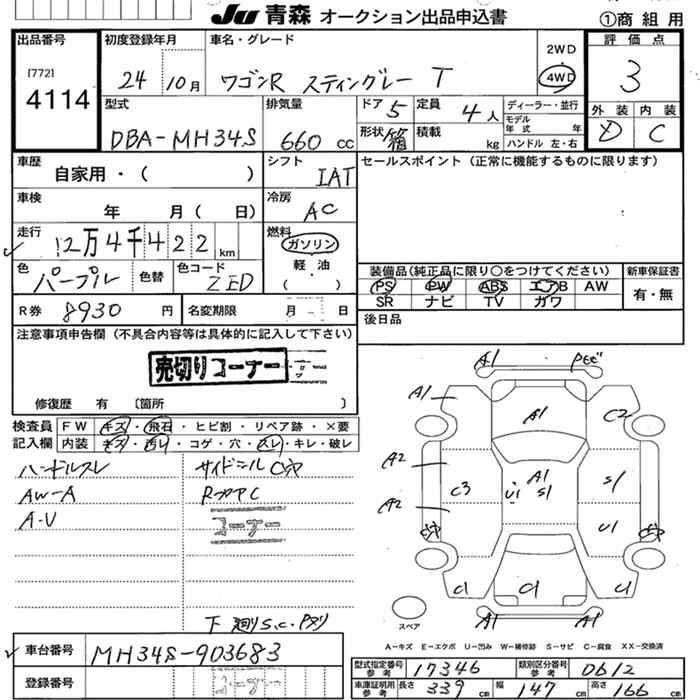 JU 青森 オークション出品申込書 ①商組用
出品番号 初度登録年月 車名・グレード 評価点
[772] 24 10月 ワゴンR スティングレー T 2WD 4WD 3
4114
型式 排気量 ドア 5 定員 4人 ディーラー・並行 外装 内装
DBA-MH34S 660 CC 形状 箱 積載 kg モデル年式 年 D C
ハンドル 左・右
車歴 自家用・( ) シフト IAT セールスポイント (正常に機能するものに限ります)
車検 年 月( 日) 冷房 AC
走行 12万4千422 km 燃料 ガソリン
軽・油
( )
色 パープル 色替 色コード ZED
装備品(純正品に限り○をつけてください) 新車保証書
PS PW ABS エアB AW 有・無
SR ナビ TV ガワ
R券 8930 円 名変期限 月 日 後日品
注意事項申告欄 (不具合内容等は具体的に記入して下さい)
売切りコーナー
修復歴 有 〔箇所 〕
検査員 FW キズ・飛石・ヒビ割・リペア跡・×要
記入欄 内装 キズ・汚レ・コゲ・穴・スレ・キレ・破レ
ハンドルスレ サイドシル
AW-A
A-V コーナー
A1 A1 C2 A1
A2 C3 U1 A1 S1 S1
A2 U1
C1 C1 C1
A1 A1
スペア
下廻りS.C.
A-キズ E-エクボ U-凹み W-補修跡 S-サビ C-腐食 XX-交換済
車台番号 MH34S-903683
登録番号 コーナー
型式指定番号 参考 17346 類別区分番号 参考 0612
車庫証明用 参考 長さ 339 cm 幅 147 cm 高さ 166 cm